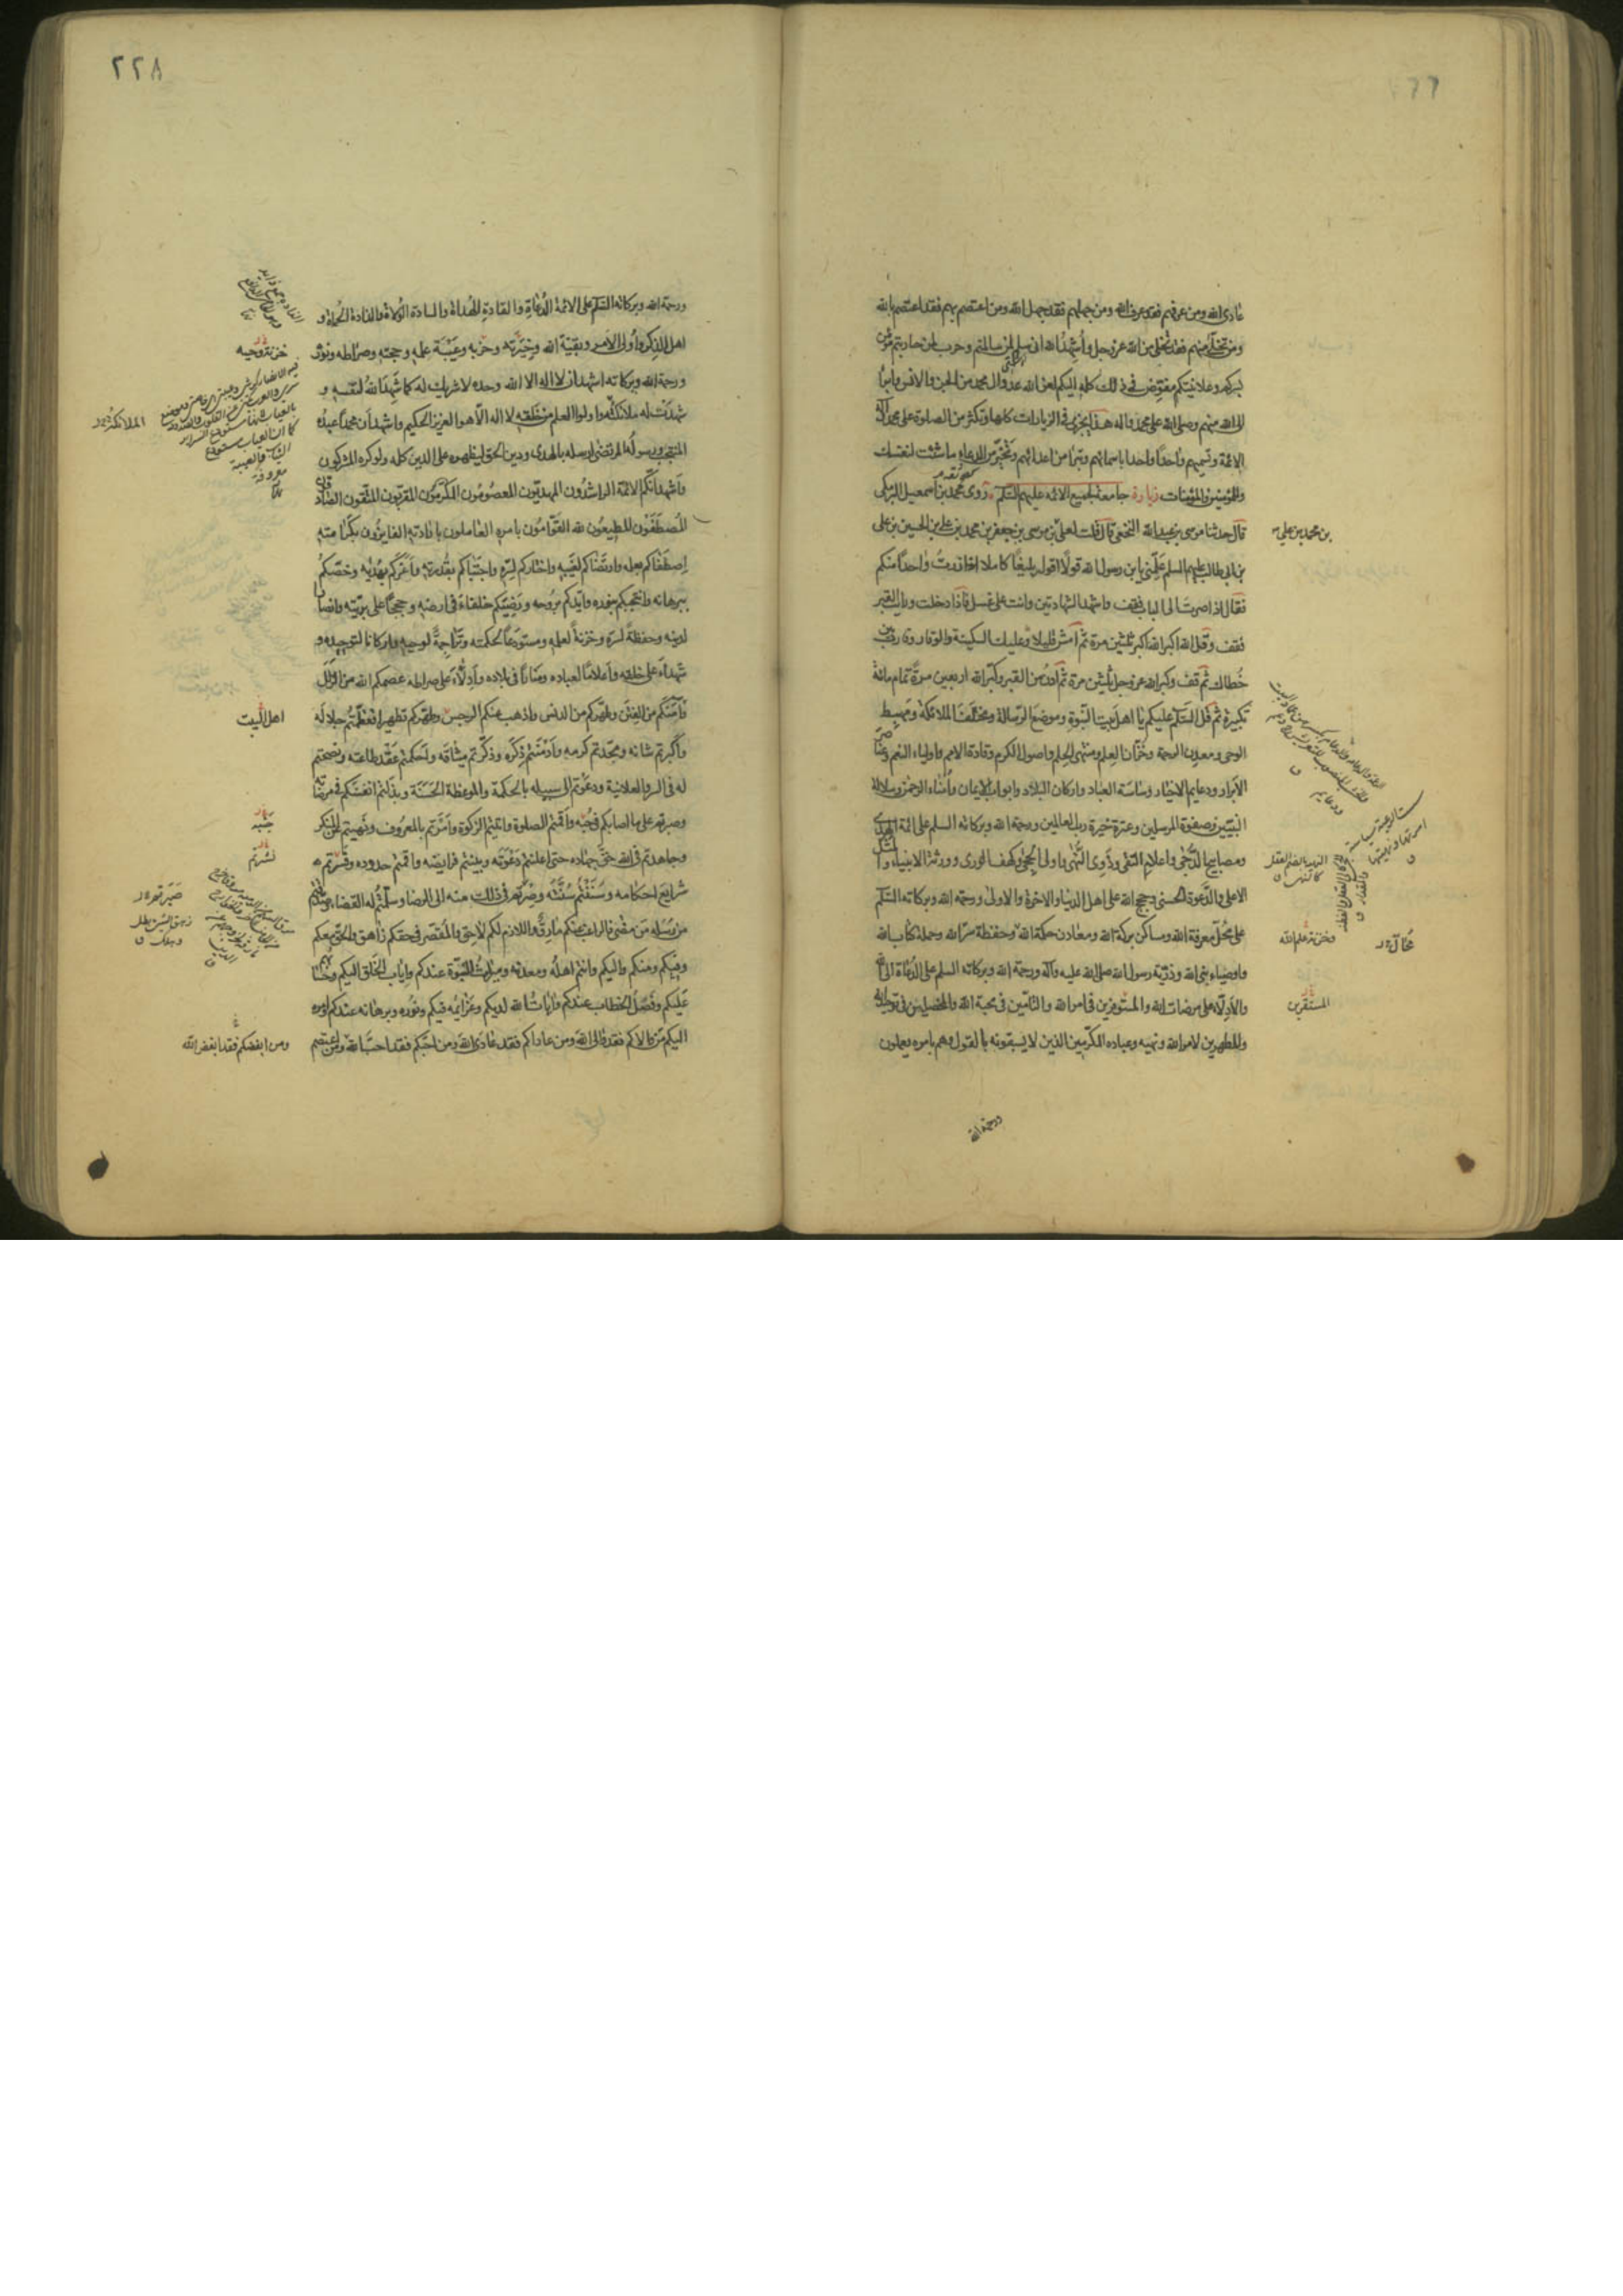 عادى الله ومن عرفهم فقد عرف الله ومن جهلهم فقد جهل الله ومن اعتصم بهم فقد اعتصم بالله
ومن تخلّى منهم فقد تخلّى من الله عز وجل وأُشهِدُ الله انى سلم لمن سالمتم وحرب لمن حاربتم مؤمن
بسركم وعلانيتكم مفوّض فى ذلك كله اليكم لعن الله عدو ال محمد من الجن والانس وابرأ
الى الله منهم وصلى الله على محمد واله هذا يجزى فى الزيارات كلها وتكثر من الصلوة على محمد وآله
الائمة وتسميهم واحدا واحدا باسمائهم وتبرأ من اعدائهم وتخيّر من الدعاء ما شئت لنفسك
وللمؤمنين والمؤمنات زيارة جامعة لجميع الائمه عليهم السّلم روى محمد بن اسمعيل البرمكى
قال حدثنا موسى بن عبدالله النخعى قال قلت لعلى بن موسى بن جعفر بن محمد بن على بن الحسين بن على
بن محمد بن على
بن ابى طالب عليهم السلم علّمنى يابن رسول الله قولًا اقوله بليغًا كاملا اذا زرتُ واحدًا منكم
فقال اذا صرتَ الى الباب فقف واشهد الشهادتين وانت على غسل فاذا دخلت ورايت القبر
فقف وقل الله اكبر الله اكبر ثلثين مرة ثم امش قليلا وعليك السكينة والوقار وقارب بين
خُطاك ثم قف وكبر الله عز وجل ثلثين مرة ثم ادنُ من القبر وكبّر الله اربعين مرةً تمام مائة
تكبيرة ثم قل السّلم عليكم يا اهل بيت النّبوة وموضع الرّسالة ومختلَف الملائكة ومهبط
الوحى ومعدن الرحمة وخُزّان العِلم ومنتهى الحِلم واصول الكرم وقادة الامم واولياء النعم وعناصر
الأبرار ودعايم الاخيار وساسَة العباد واركان البلاد وابواب الايمان وأُمَناء الرّحمن وسلالة
النبيّين وصفوة المرسلين وعترة خيرة رب العالمين ورحمة الله وبركاته السلم على ائمة الهدى
ومصابيح الدُّجى واعلام التقى وذوى النُّهى واولى الحِجى وكهف الورى وورثة الانبياء والمثل
الاعلى والدَّعوة الحسنى وحجج الله على اهل الدنيا والاخرة والاولى ورحمة الله وبركاته السّلم
على محالّ معرفة الله ومساكن بركة الله ومعادن حكمة الله وحفظة سرّ الله وحملة كتاب الله
وخزنة علم الله
واوصياء نبى الله وذريّة رسول الله صلى الله عليه وآله ورحمة الله وبركاته السلم على الدّعاة الى الله
والأدلّاء على مرضات الله والمستوفرين فى امر الله والتامّين فى محبة الله والمخلصين فى توحيد الله
المستقرين
والمظهرين لامر الله ونهيه وعباده المكرّمين الذين لا يسبقونه بالقول وهم بامره يعملون
ورحمة الله
٢٢٨
ورحمة الله وبركاته السّلم على الائمة الدُّعاةِ والقادةِ الهُداة والسادة الوُلاة والذادة الحُماة و
اهل الذكر وأُولى الامر وبقيّة الله وخِيَرَته وحزبه وعَيْبَة علمه وحجته وصراطه ونوره
خزنة وحيه
ورحمة الله وبركاته اشهد ان لا اله الا الله وحده لا شريك له كما شَهِدَ اللهُ لنفسه و
شهدَتْ له ملائكتُه واولوا العلم من خلقه لا اله الّا هو العزيز الحكيم واشهد ان محمدا عبدُه
المنتجب ورسولُه المرتضى ارسله بالهدى ودين الحق ليظهره على الدين كله ولو كره المشركون
واشهد انّكم الائمة الراشدُون المهديّون المعصومُون المكرّمُون المقرّبون المتّقون الصّادقون
المُصطَفَوْن المطيعُون لله القوّامُون بامره العاملون بارادته الفايزُون بكرامته
اصطفاكم بعلمه وارتضاكم لغيبِه واختاركم لسرّه واجتباكم بقُدرته واعزّكم بهُداه وخصّكم
ببرهانه وانتجبكم بنوره وايّدكم بروحه ورَضِيَكم خلفاءَ فى ارضه وحججًا على بريّته وانصارا
لدينه وحفظةً لسرّه وخزنةً لعلمه ومستودعًا لحكمته وتَراجمةً لوحيه واركانا لتوحيده و
شهداءَ على خلقه واعلامًا لعباده ومنارًا فى بلاده وأدِلّاءَ على صراطه عصمكم الله من الزّلل
وآمنكم من الفِتن وطهّركم من الدنس واذهب عنكم الرجس وطهّركم تطهيرا فعظّمتُم جلاله
اهل البيت
واكبرتم شانه ومجّدتم كرمه وادمنتم ذكره وذكّرتم ميثاقه واحكمتم عَقْد طاعته ونصحتم
له فى السر والعلانية ودعوتم الى سبيله بالحكمة والموعظة الحَسَنَة وبذلتم انفسَكم فى مرضاته
وصبرتم على ما اصابكم فى حُبّه واقمتم الصلوة واتيتم الزكوة وامرتم بالمعروف ونهيتم عن المنكر
جَنبه
وجاهدتم فى الله حقَّ جهاده حتى اعلنتم دَعْوَته وبيّنتم فرايضه واقمتم حدوده وفسّرتم
نشرتم
شرايع احكامه وسَنَنْتُم سُنَّتَه وصِرْتم فى ذلك منه الى الرضا وسلّمتُم له القضاء وصدّقتم
من رُسُله مَن مضى فالراغب عنكم مارقٌ واللازم لكم لاحِق والمُقصّر فى حقكم زاهق والحق معكم
وفيكم ومنكم واليكم وانتم اهلُه ومعدنه وميراث النّبوّة عندكم واياب الخَلق اليكم وحسابهم
عَليكم وفَصلُ الخطاب عندكم وآيات الله لديكم وعَزائمه فيكم ونُوره وبرهانه عندكم وامره
اليكم مَن والاكم فقد والى الله ومن عاداكم فقد عادَى الله ومن احبّكم فقد احبَّ الله ومن اعتصم
ومن ابغضكم فقد ابغض الله